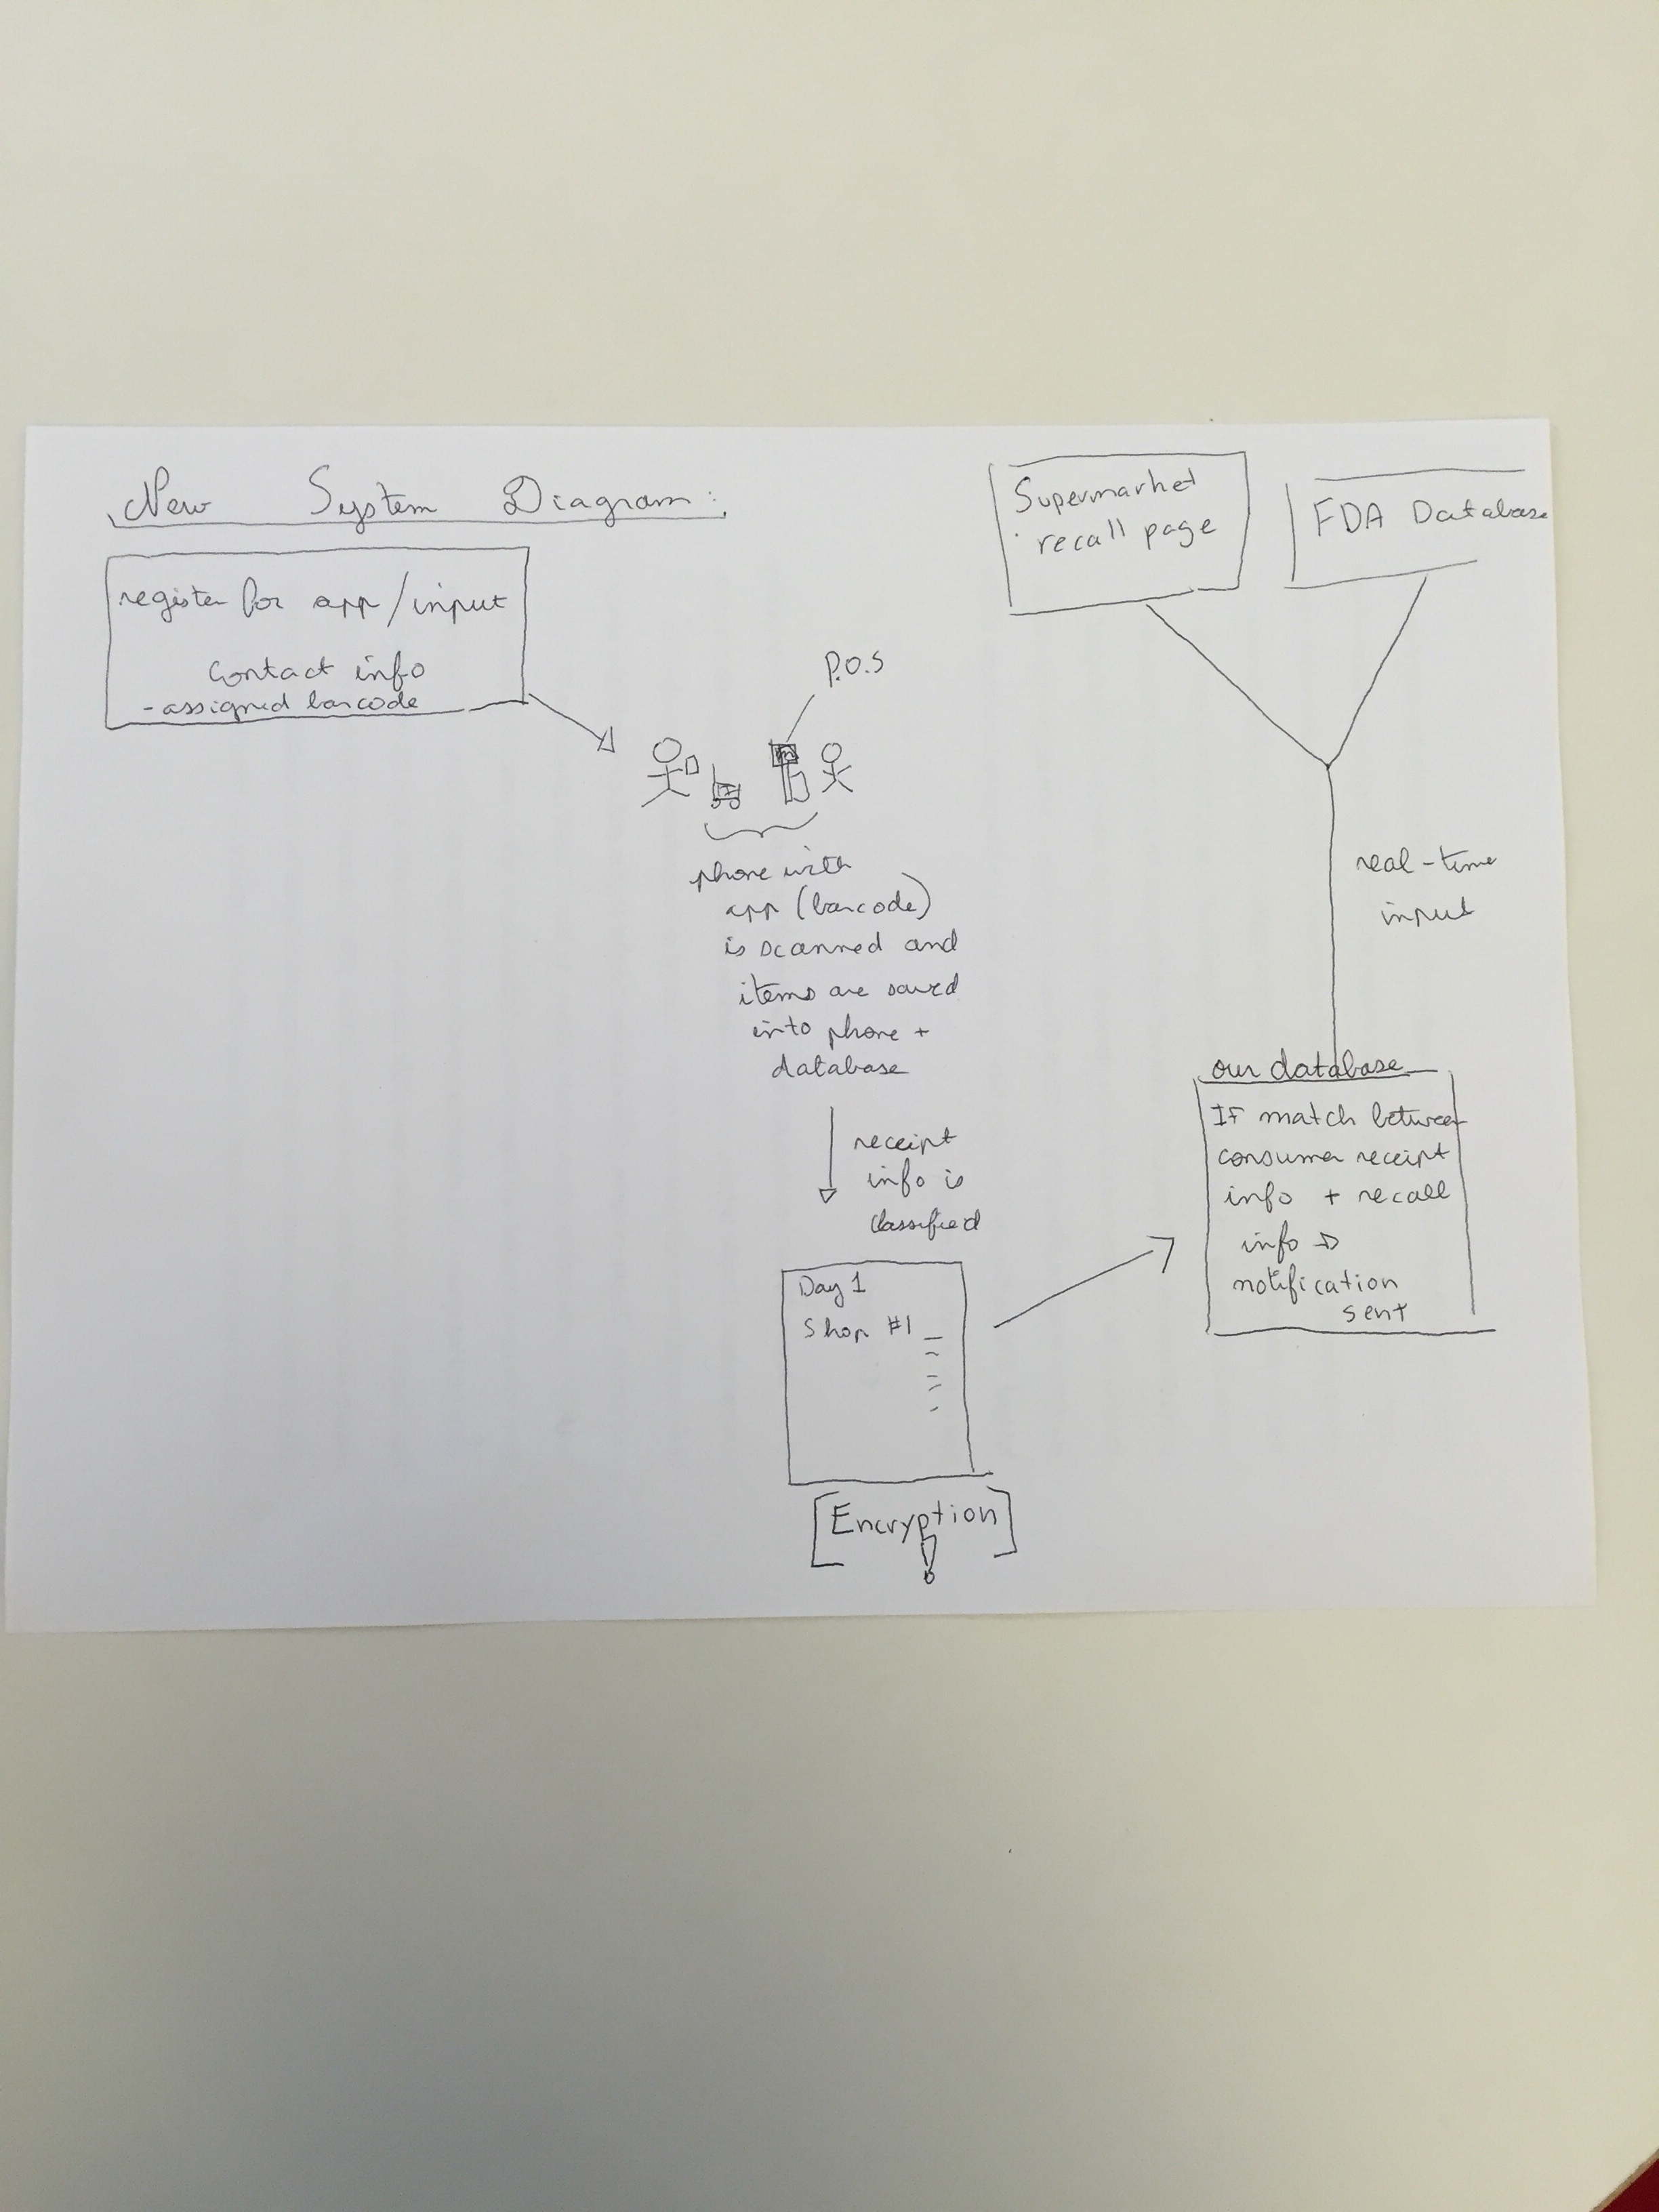 New System Diagram:
register for app/input
Contact info
- assigned barcode
P.O.S
phone with
app (barcode)
is scanned and
items are saved
into phone +
database
receipt
info is
classified
Day 1
Shop #1
[Encryption]
!
Supermarket
recall page
FDA Database
real-time
input
our database
If match between
consumer receipt
info + recall
info →
notification
sent